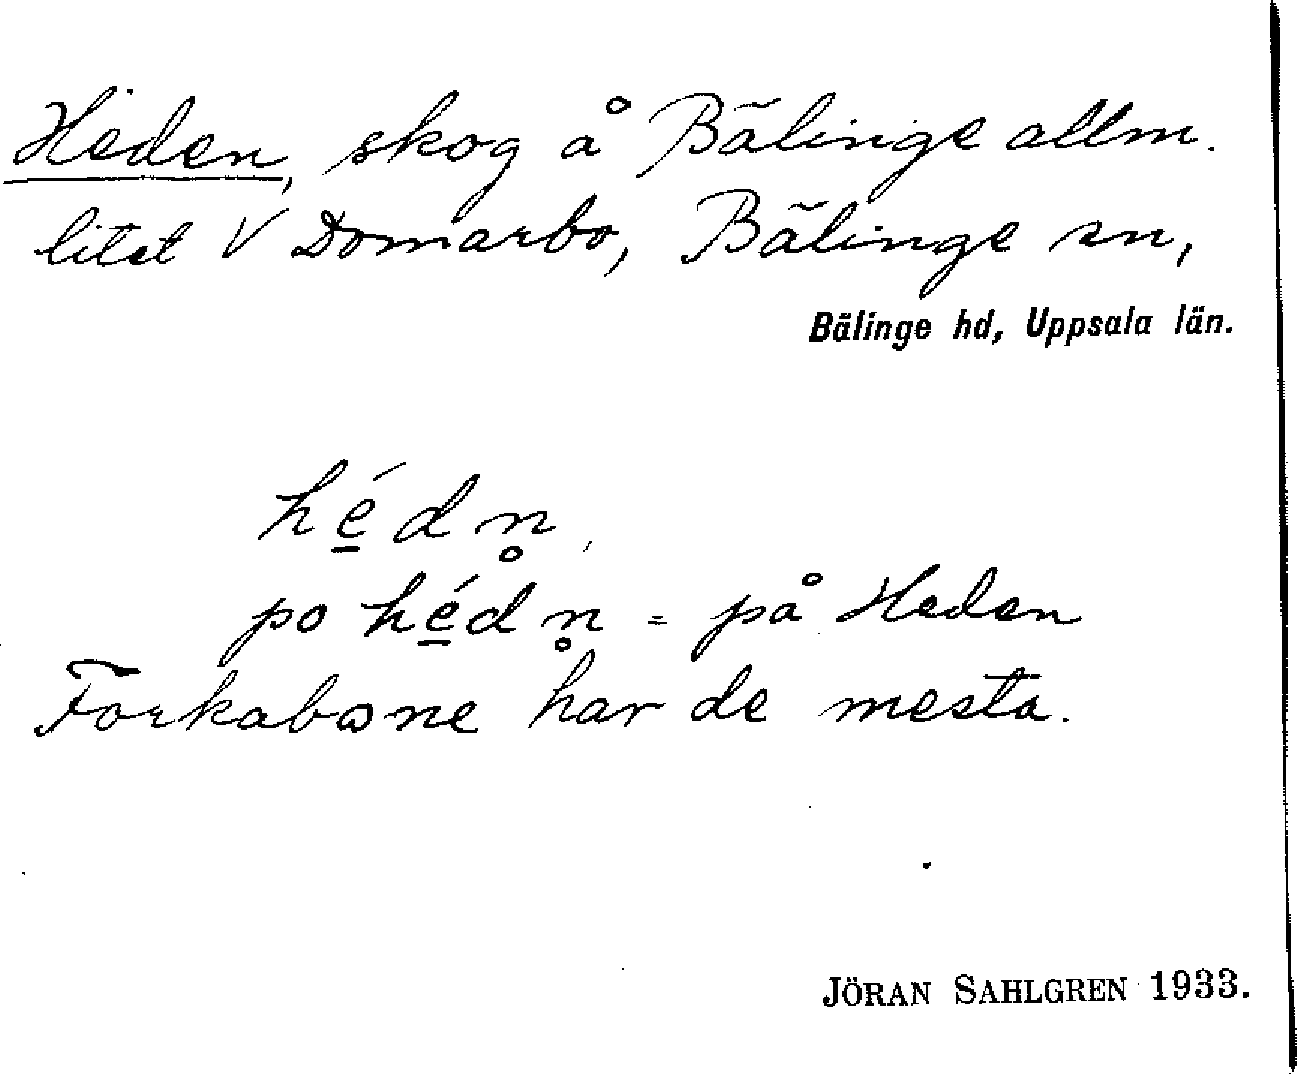 Heden, skog å Bälinge allm.
litet V Domarbo, Bälinge sn,
Bälinge hd, Uppsala län.
hé̱dn̥,
po hé̱dn̥ = på Heden
Forkabɷne har de mesta.
JÖRAN SAHLGREN 1933.